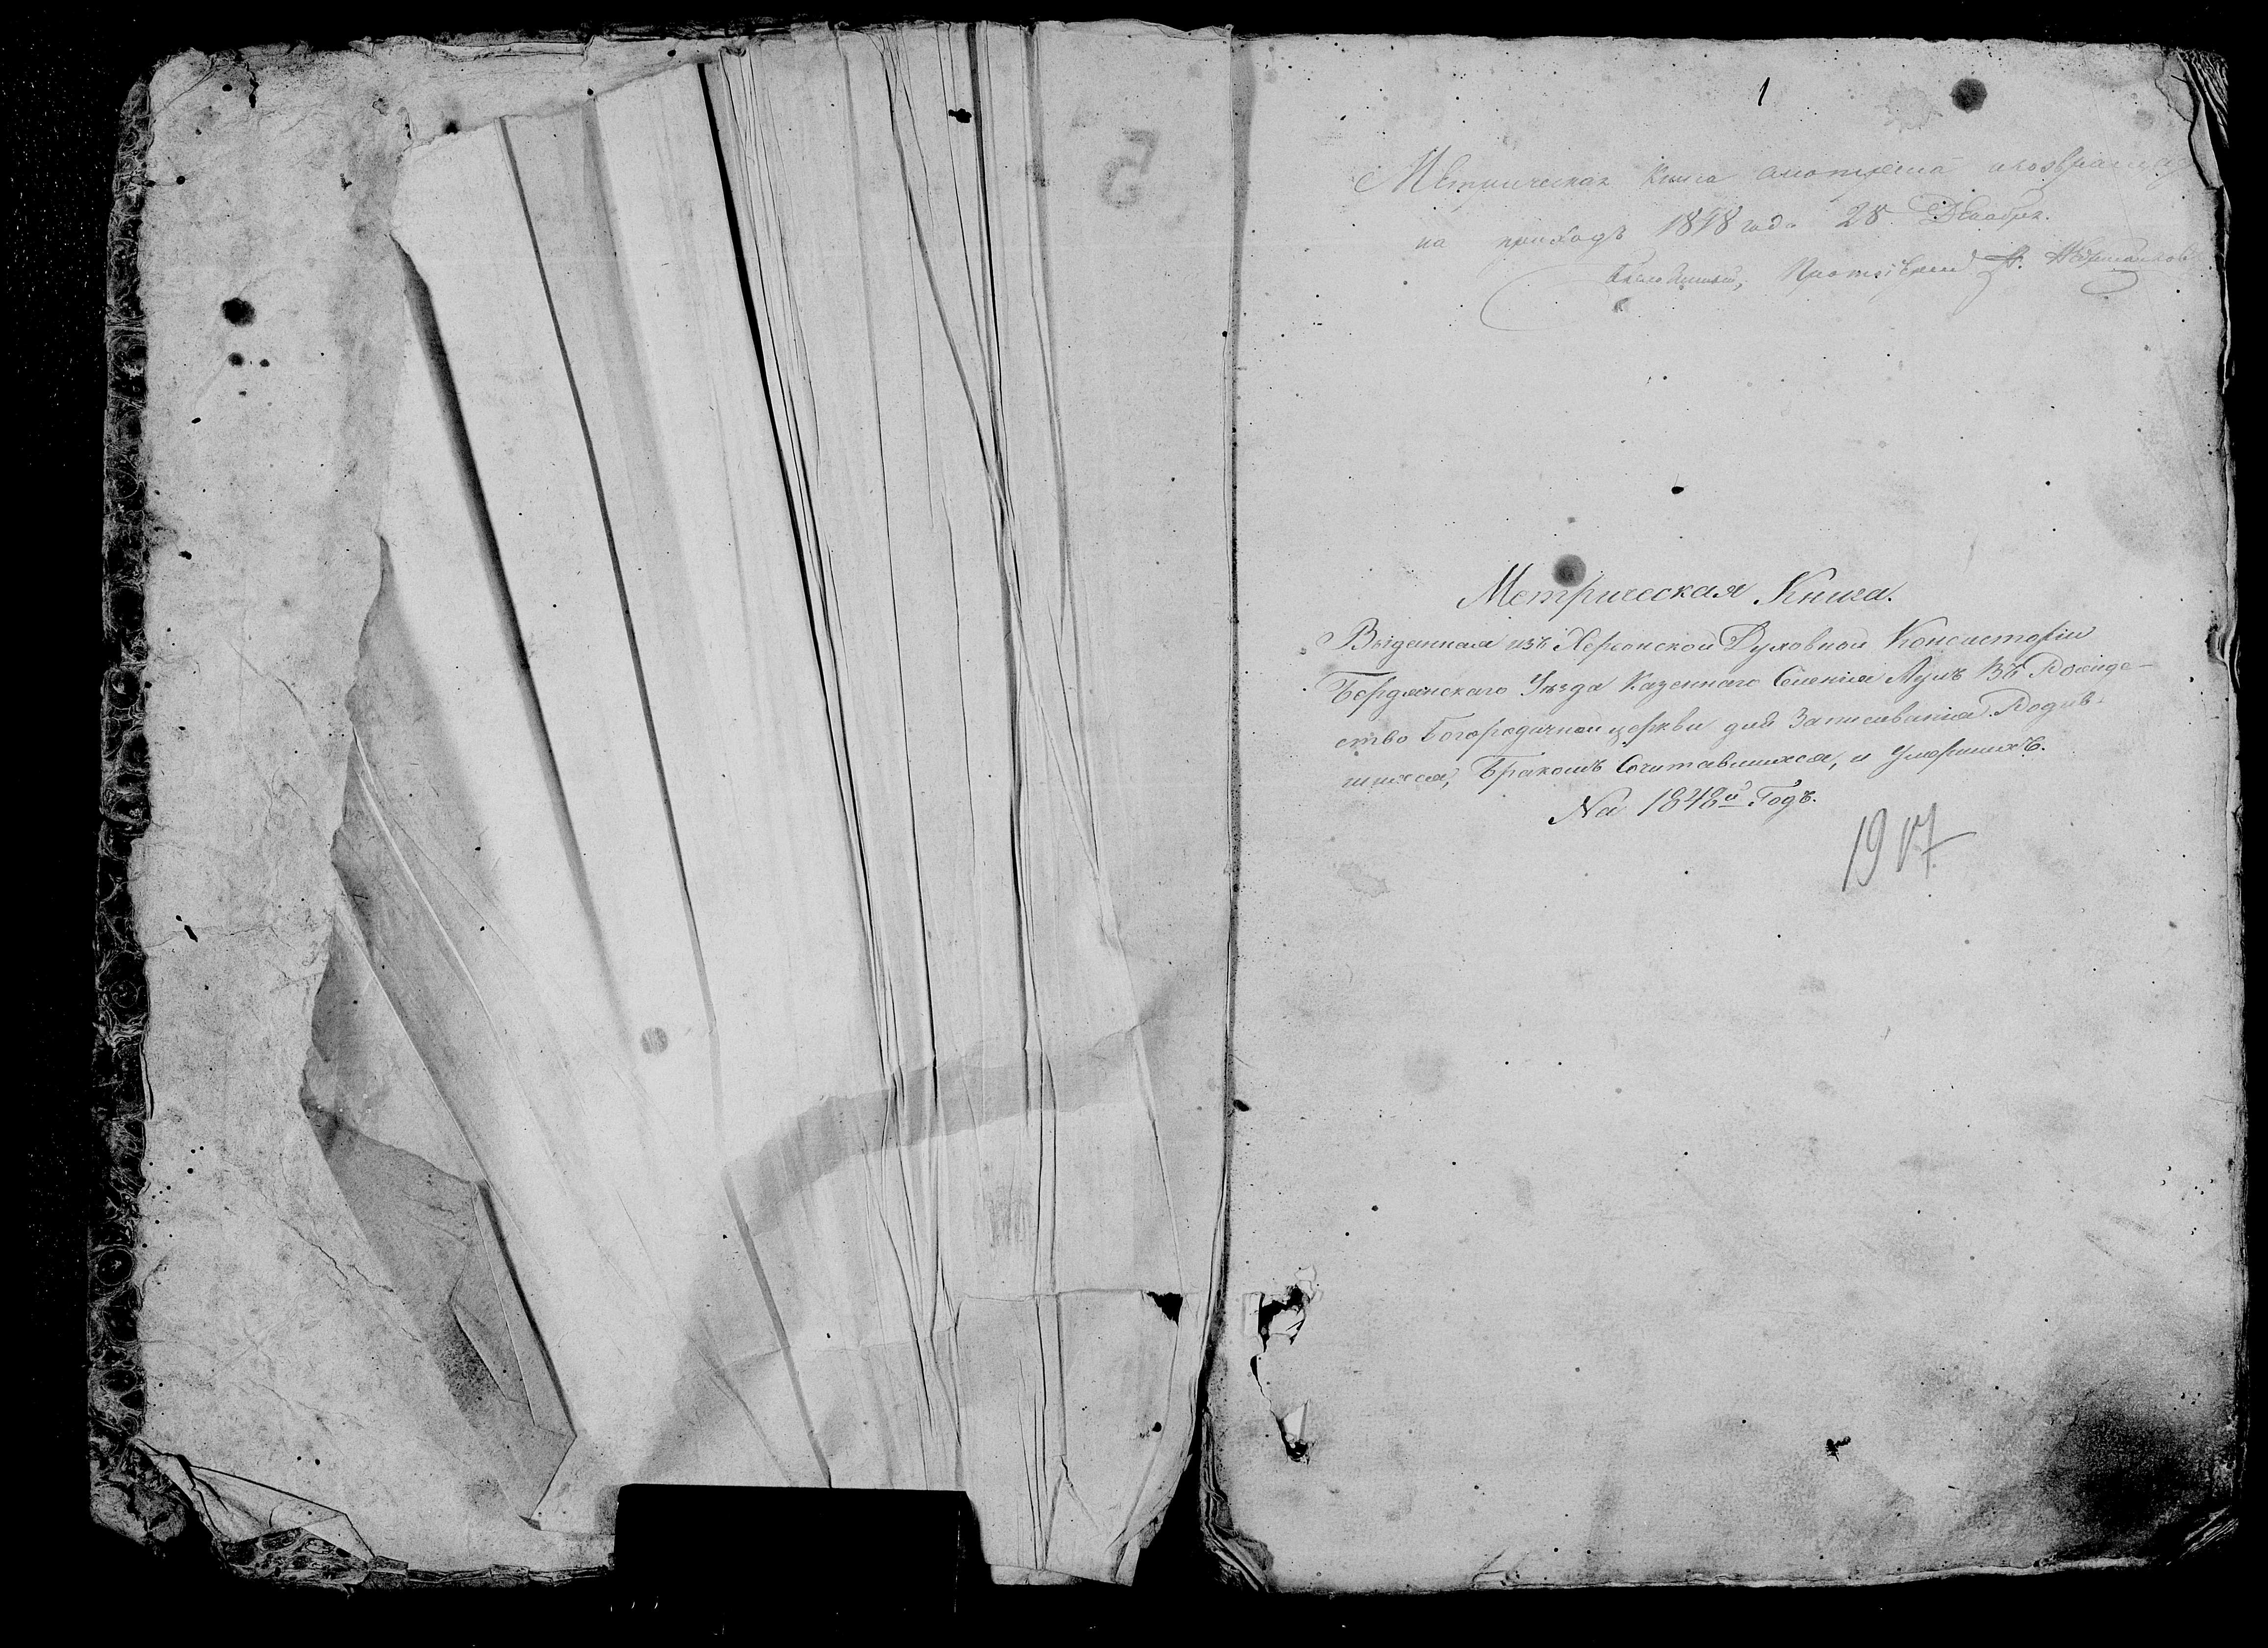 1
Метрическая Книга смотрена и возвращена
на приходъ 1848 года 28 Декабря.
Благочинный, Протоіерей
Метрическая Книга.
Выданная изъ Херсонской Духовной Консисторіи
Бердянскаго Уѣзда Казеннаго Селенія Аулъ въ Рожде-
ство Богородичной церкви для Записыванія Родив-
шихся, Бракомъ Сочитавшихся, и Умершихъ.
На 1848й Годъ.
1917